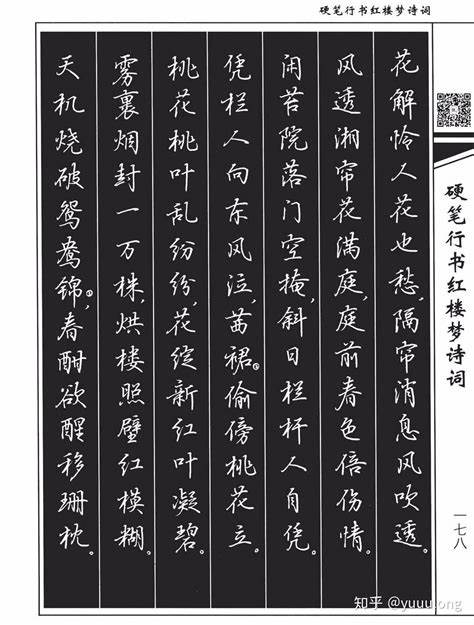 硬笔行书红楼梦诗词
花解怜人花也愁，隔帘消息风吹透。
风透湘帘花满庭，庭前春色倍伤情。
闲苔院落门空掩，斜日栏杆人自凭。
凭栏人向东风泣，茜裙偷傍桃花立。
桃花桃叶乱纷纷，花绽新红叶凝碧。
雾裹烟封一万株，烘楼照壁红模糊。
天机烧破鸳鸯锦，春酣欲醒移珊枕。
硬笔行书红楼梦诗词
一七八
知乎 @yuuulong